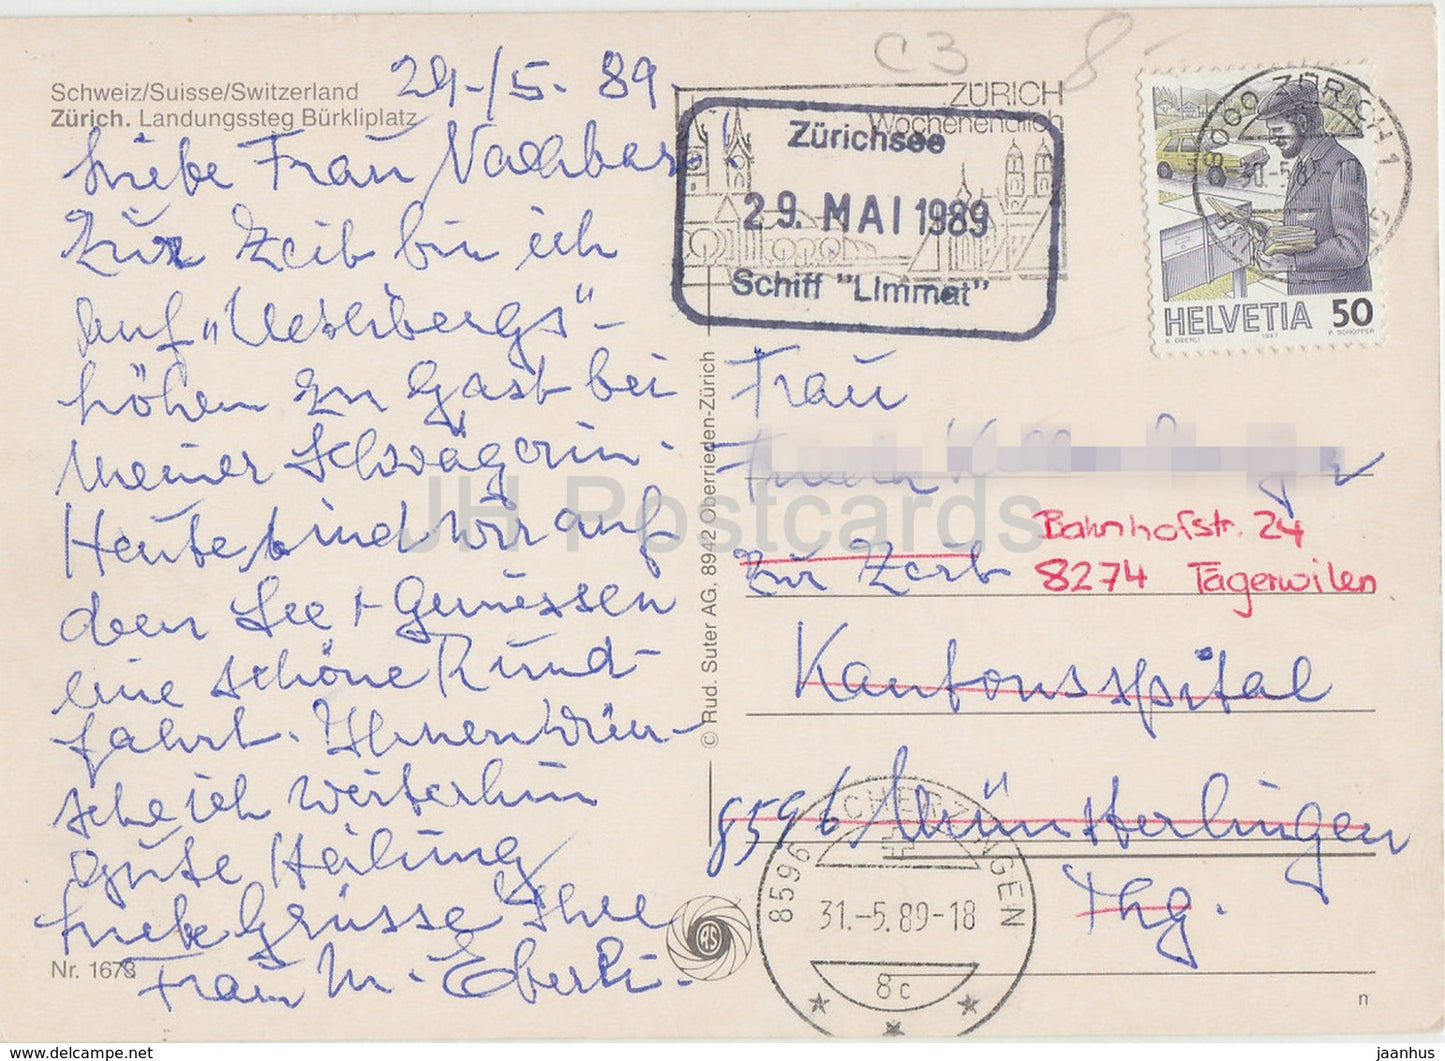 C3 8-
Schweiz/Suisse/Switzerland
Zürich. Landungssteg Bürkliplatz
29-/5-89
Liebe Frau Nachbarin!
Zur Zeit bin ich
auf „Uetlibergs"-
höhen zu Gast bei
meiner Schwägerin.
Heute sind wir auf
dem See + geniessen
eine schöne Rund-
fahrt. Ihnen wün-
sche ich weiterhin
gute Heilung
Liebe Grüsse Ihre
Frau M. Eberli.
Nr. 1673
© Rud. Suter AG, 8942 Oberrieden-Zürich
RS
ZÜRICH
Wochenendlich
Zürichsee
29. MAI 1989
Schiff "Limmat"
8000 ZÜRICH 1
HELVETIA 50
K. OBERLI 1987 P. SCHOPFER
Frau
Zur Zeit
Bahnhofstr. 24
8274 Tägerwilen
Kantonsspital
8596 Münsterlingen
Thg.
8596 SCHERZINGEN
31.-5.89-18
8c
n
JH Postcards
https://www.jaanhus.com/
jaanhus